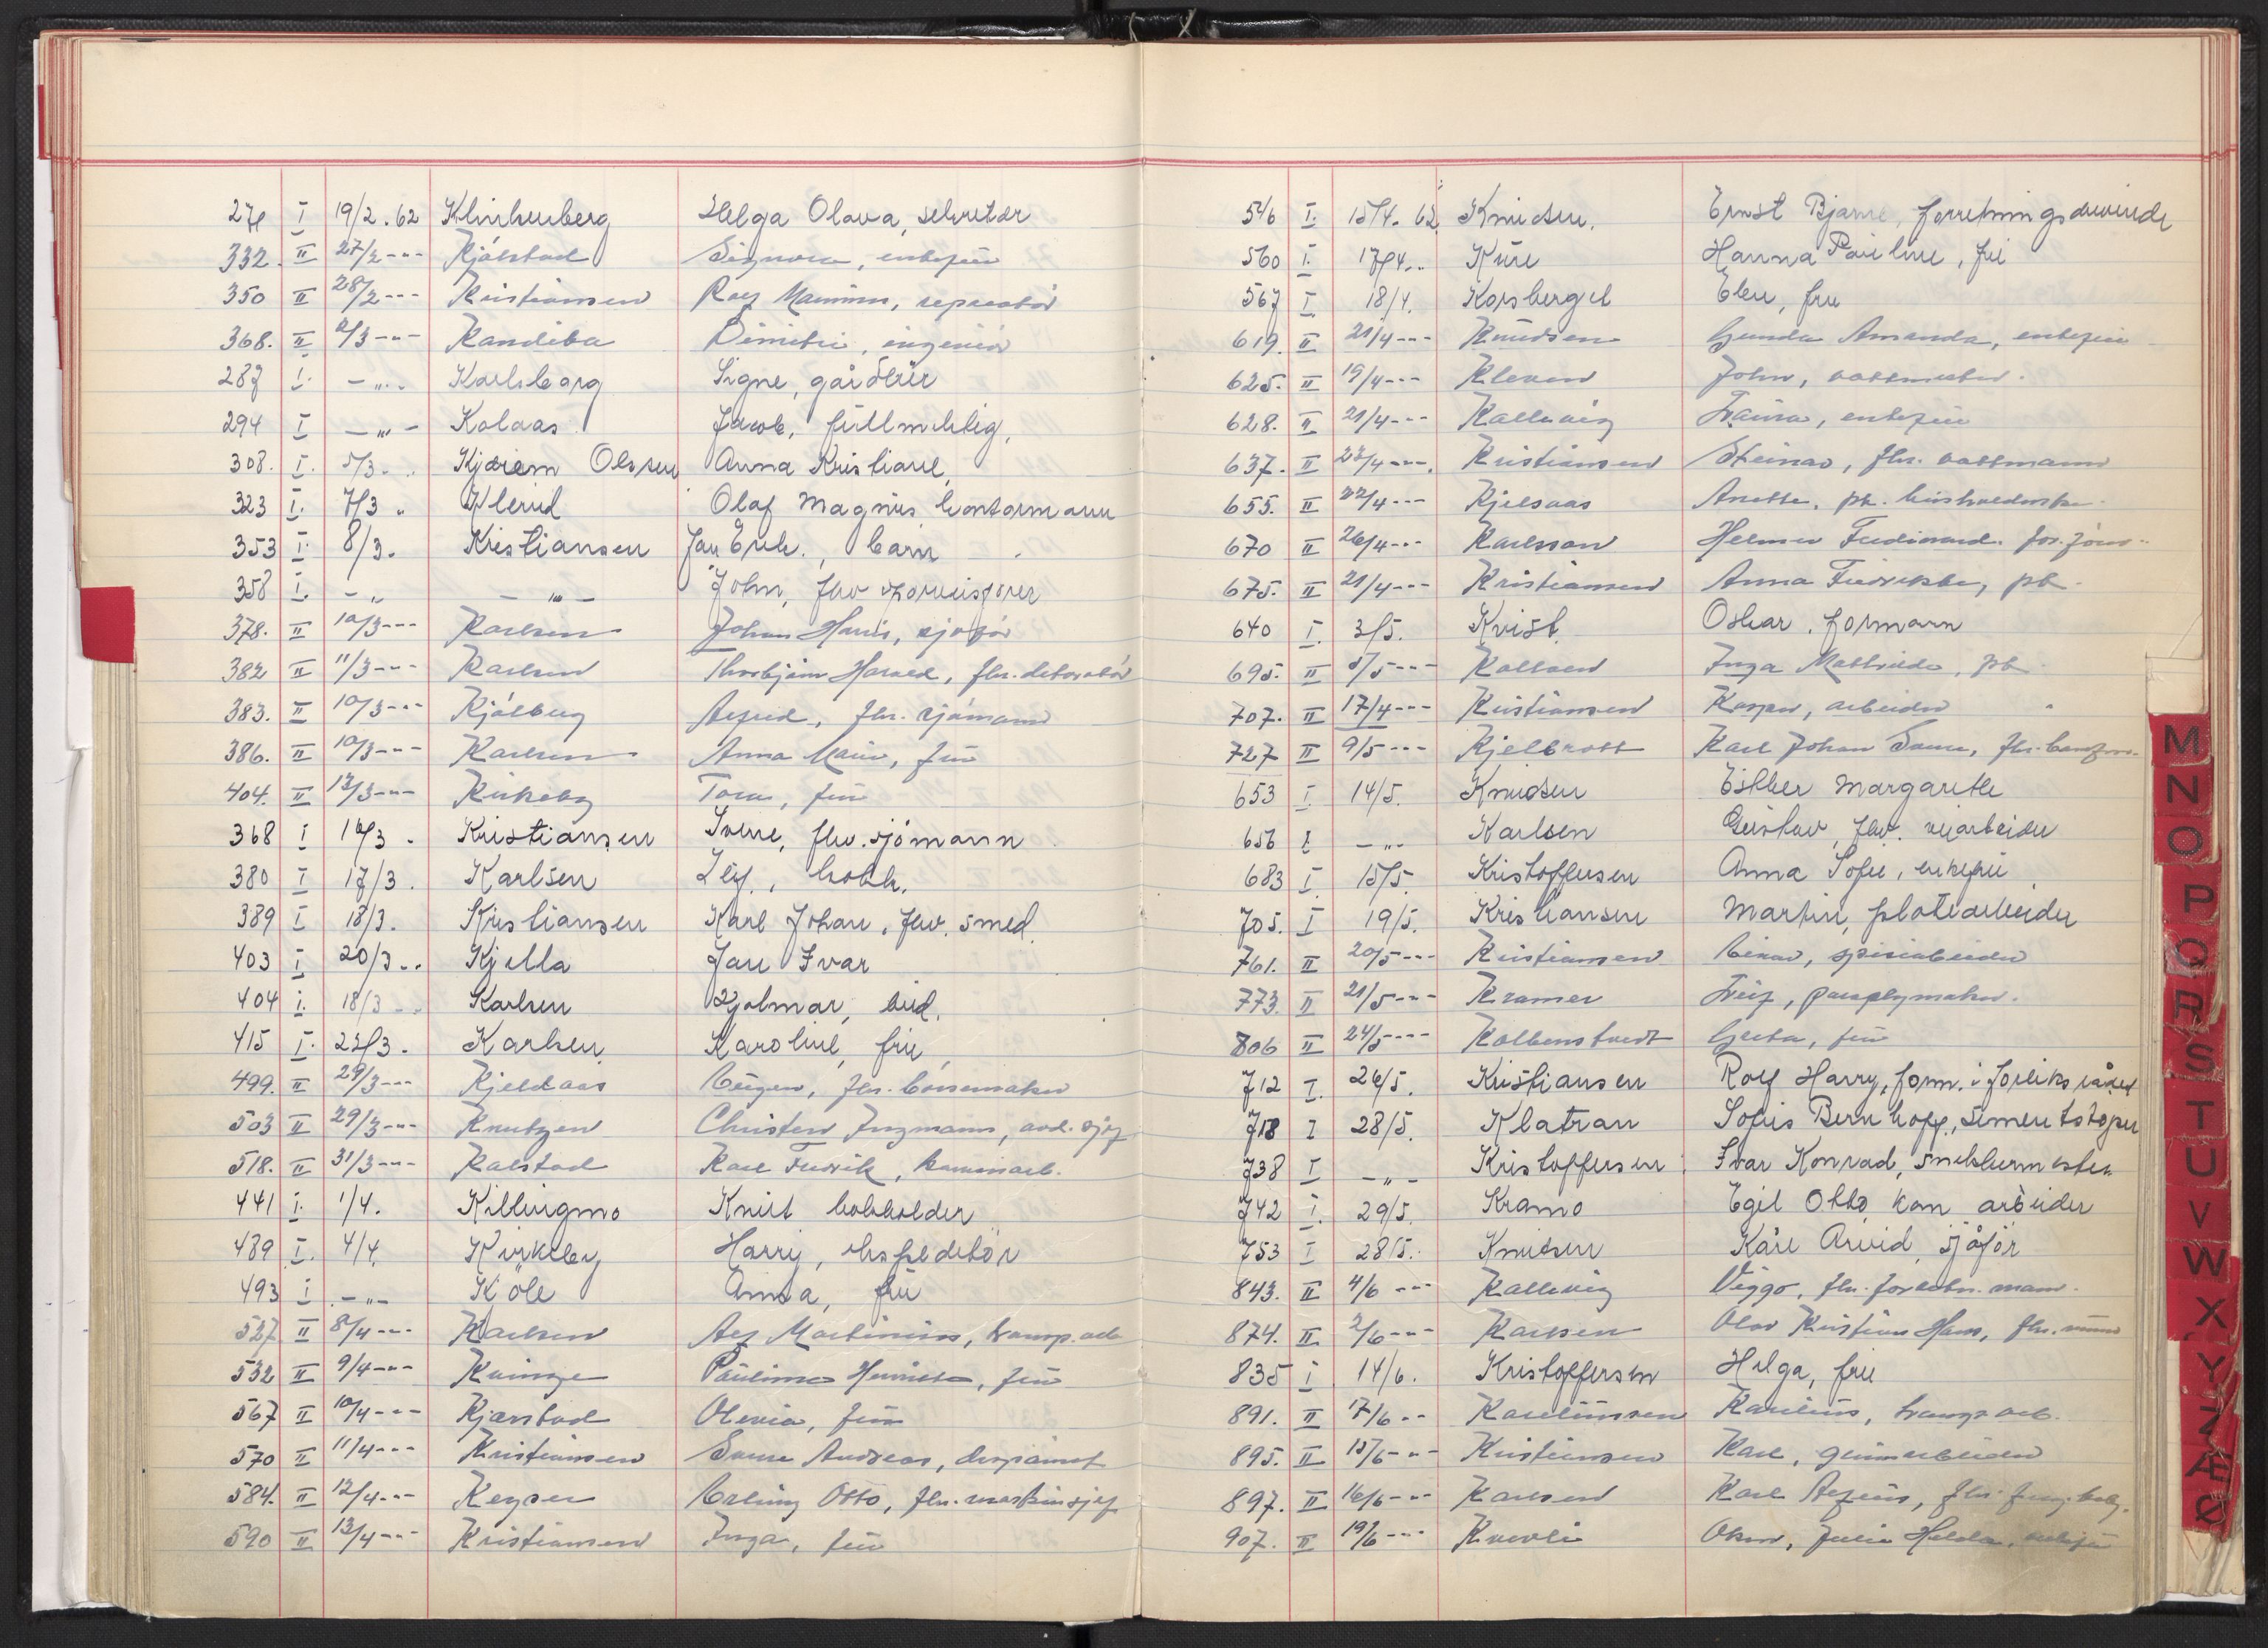 274 I 19/2.62 Klinkenberg Helga Olava, sekretær
332. II 27/2 -"- Kjölstad Signora, enkefrü
350 II 28/2 -"- Kristiansen Rolf Maurits, reparatör
368. II 2/3 -"- Kandiba Dimitri, ingeniör
287 I. -"- Karlsborg Signe, gårdbrüker
294 I -"- Kolaas Jacob, füllmektig,
308. I. 5/3. " Kjæram Olsen Anna Kristiane,
323 I. 7/3 " Klerud Olaf Magnus kontormann
353 I. 8/3. Kristiansen Jan Erik, barn
358 I. -" -"- John, fhv sporveisfører
378. II 10/3 -"- Karlsen Johan Hans, sjafør
382 II 11/3 -"- Karlsen Thorbjørn Harald, fhv. dekoratör
383. II 10/3 -"- Kjölberg Alfred, fhv. sjömann
386. II 10/3 -"- Karlsen Anna Marie, frü
404. II 13/3 -"- Kirkeby Tora, frü
368 I 16/3 . Kristiansen Sverre, fhv. sjömann
380 I 17/3. Karlsen Leif, bokh.
389 I 18/3. Kristiansen Karl Johan, fhv. smed.
403 I 20/3 .. Kjella Jan Ivar
404 I. 18/3 .. Karlsen Hjalmar, bud.
415 I. 22/3. Karlsen Karoline, frü
499. II 29/3 -"- Kjeldaas Eugen, fhv. börsemaker
503 II 29/3 -"- Knutzen Christen Ingmann, avd. sjef
518. II 31/3 -"- Kalstad Karl Fredrik, kommarb.
441 I. 1/4. Killingmo Knut bokholder
489 I. 4/4. Kirkeby Harry, ekspeditör
493 I -"- Köle Anna, frü
527 II 8/4 -"- Karlsen Alf Martinius, transp. arb
532 II 9/4 -"- Kvinge Pauline Henriette, frü
567 II 10/4 -"- Kjærstad Olevia, frü
570 II 11/4 -"- Kristiansen Sverre Andreas, disponent
584. II 12/4 -"- Keyser Erling Otto, fhv. maskinsjef
590 II 13/4 -"- Kristiansen Inga, frü
546 I. 15/4. 62. Knudsen. Ernst Bjarne, forretningsdrivende
560 I. 17/4 .. Küre Hanna Pauline, frü
567 I. 18/4. Korsberget Elen, fru
619. II 21/4 -"- Knudsen Gunda Amanda, enkefrü
625. II 19/4 -"- Kleven John, vaktmester.
628. II 21/4 -"- Kallevig Laura, enkefrü
637. II 23/4 -"-. Kristiansen Steinar, fhv. vaktmann
655. II 22/4 -"- Kjelsaas Anette, pk. hüsholderske
670 II 26/4 -"- Karlsson Helmer Ferdinand.
675. II 21/4 -"- Kristiansen Anna Fredrikke, pk.
640 I. 3/5. Kvist Oskar, formann
695. II 5/5 -"- Inga Mathilde, pk.
707. II 17/4 -"- Kristiansen Kasper, arbeider
727 II 9/5 -"- Kjelbrott Karl Johan
653 I 14/5. Knudsen Esther Margarethe
656 I -"- Karlsen Gustav, fhv. veiarbeider
683 I 15/5. Kristoffersen Anna Sofie, enkefrü
705. I 19/5. Kristiansen Martin, platearbeider
761. II 20/5 -"- Kristiansen Einar,
773. II 21/5 -"- Kramer Leif, paraplymaker.
806 II 24/5 -"- Kolbenstvedt Greta, frü
712 I. 26/5. Kristiansen Rolf Harry, form. i forliksrådet
718 I 28/5. Klatran Sofus Bernhoff, sementstöper
738 I -"- Kristoffersen Ivar Konrad, snekkermester
742 I. 29/5. Kramo Egil Otto, kom arbeider
753 I 28/5. Knudsen Kåre Arvid, sjåför
843. II 4/6 -"- Kallevig Viggo, fhv.
874. II 2/6 -"- Karlsen Olav Kristian Hans, fhv.
835 I 14/6. Kristoffersen Helga, frü
891. II 17/6 -"- Kareliussen Karelius, transp arb.
895. II 15/6 -"- Kristiansen Karl, gummiarbeider
897. II 16/6 -"- Karlsen Karl
907. II 19/6 -"- Kvevli Julie Helda, enkefrü
M
N
O
P
Q
R
S
T
U
V
W
X
Y
Z
Æ
Ø